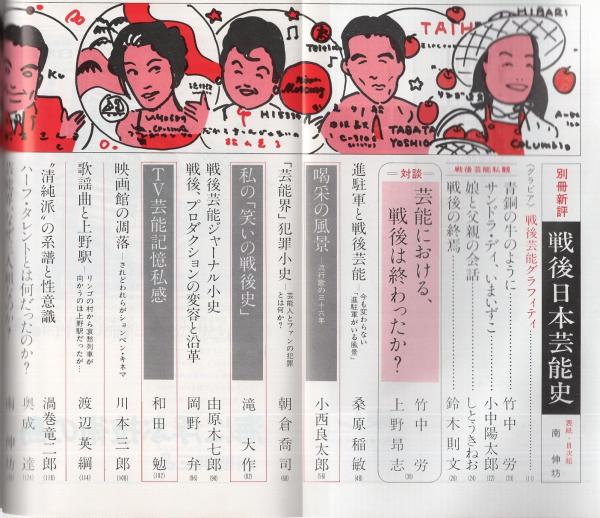 KU
HIBARI
TAIH
TABATA
YOSHIO
COLUMBIA
別冊新評
戦後日本芸能史
表紙・目次絵
南 伸坊
〈グラビア〉戦後芸能グラフィティ
(11)
戦後芸能私観
青銅の牛のように 竹中 労
サンドラ・ディ、いまいずこ 小中陽太郎
娘と父親の会話 しとうきねお (24)
戦後の終焉 鈴木則文 (26)
対談
芸能における、
戦後は終わったか?
竹中 労
上野昂志
(30)
進駐軍と戦後芸能
今も変わらない
“進駐軍がいる風景”
桑原稲敏 (48)
喝采の風景
流行歌の三十六年
小西良太郎 (56)
「芸能界」犯罪小史
芸能人とファンの犯罪
とは何か?
朝倉喬司 (68)
私の「笑いの戦後史」
滝 大作 (82)
戦後芸能ジャーナル小史 由原木七郎 (90)
戦後、プロダクションの変容と沿革 岡野 弁 (96)
TV芸能記憶私感
和田 勉 (102)
映画館の凋落
—されどわれらがションベン・キネマ
川本三郎 (108)
歌謡曲と上野駅
リンゴの村から哀愁列車が
向かうのは上野駅だったが…
渡辺英綱 (114)
“清純派”の系譜と性意識 渦巻竜二郎 (118)
ハーフ・タレントとは何だったのか? 奥成 達
南 伸坊